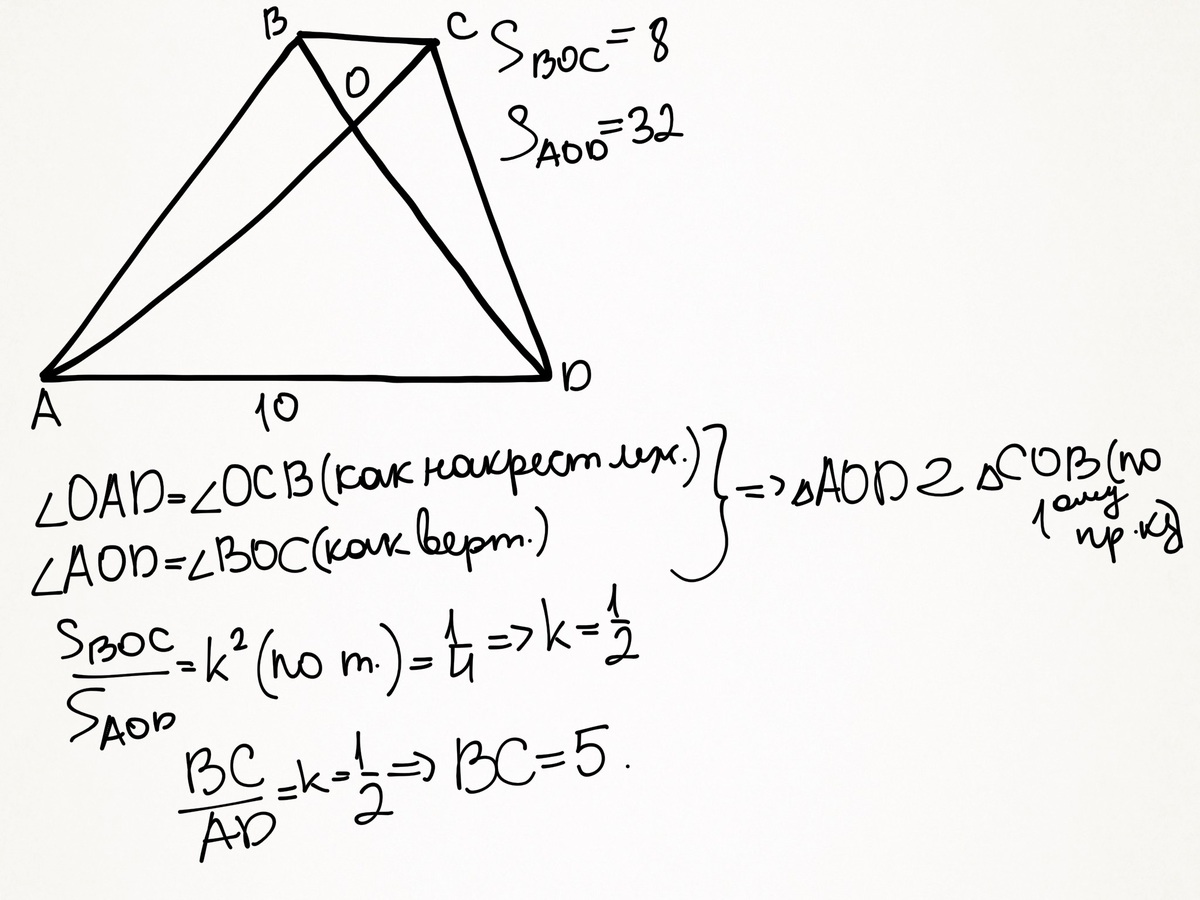 B
C
S_BOC = 8
O
S_AOD = 32
A
D
10
∠OAD=∠OCB (как накрест леж.)
∠AOD=∠BOC (как верт.)
} => ▵AOD ∾ ▵COB (по
1ому
пр.ку)
S_BOC / S_AOD = k² (по т.) = 1/4 => k = 1/2
BC / AD = k = 1/2 => BC = 5.